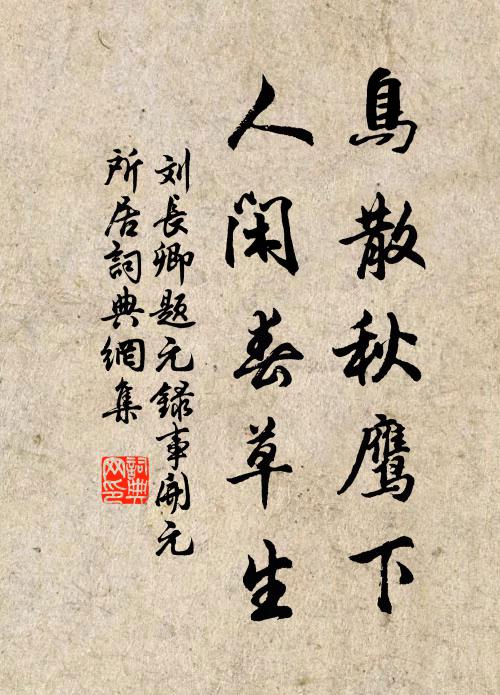 鳥散秋鷹下
人閑春草生
刘長卿题元録事開元
所居詞典網集
詞典网印